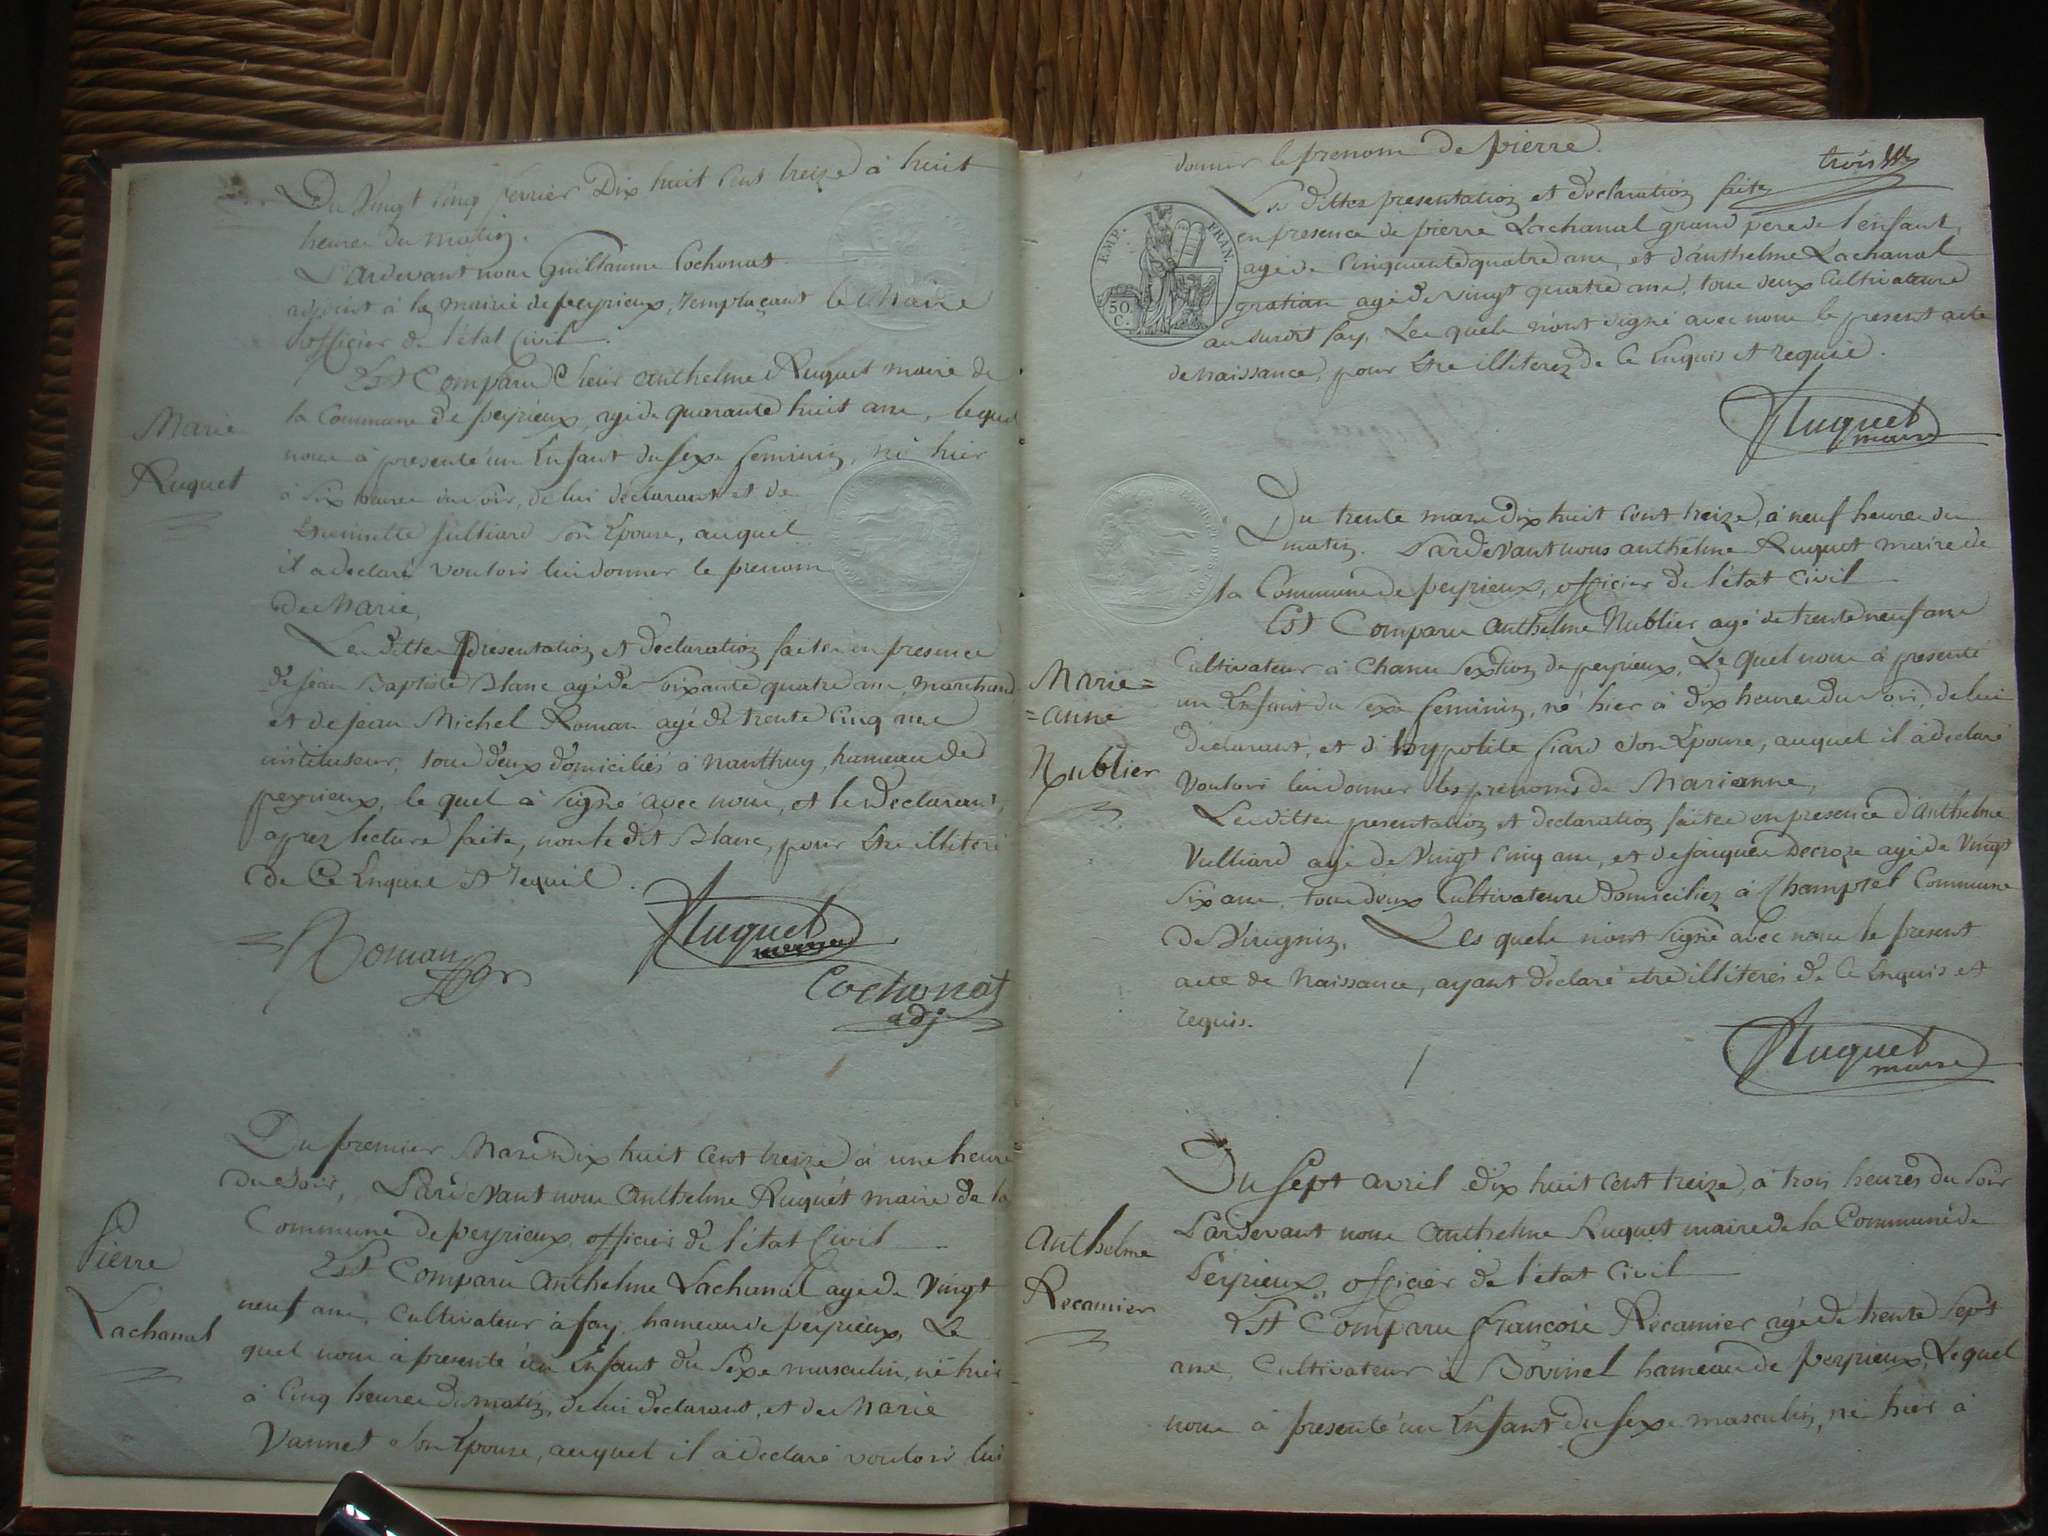 Du Vingt Cinq fevrier Dix huit Cent treize à huit
heures du matin.
Pardevant nous Guillaume Cochonat
adjoint à la mairie de peyrieux, remplaçant le Maire
officier de l'état Civil
Est Comparu Sieur anthelme Ruquet maire de
la Commune de peyrieux, agé de quarante huit ans, lequel
nous à presenté un Enfant du sexe feminin, né hier
à six heures du soir, de lui declarant et de
julliard son Epouse, auquel
il a declaré vouloir lui donner le prenom
de Marie,
Les dittes presentation et declaration faites en presence
de jean Baptiste Blanc agé de soixante quatre ans, marchand
et de jean Michel Roman agé de trente Cinq ans
instituteur, tous deux domiciliés à nanthuy, hameau de
peyrieux, le quel à signé avec nous, et le Declarant,
aprez lecture faite, non le dit Blanc, pour Etre illiteré
de Ce Enquis et requis.
Marie
Ruquet
Roman
Ruquet
Cochonat
adj.
Du premier Mars Dix huit Cent treize à une heure
du soir, Pardevant nous anthelme Ruquet maire de la
Commune de peyrieux officier de l'état Civil
Est Comparu anthelme Lachanal agé de Vingt
neuf ans, Cultivateur à fay, hameau de peyrieux, Le
quel nous à presenté un Enfant du sexe masculin, né hier
à Cinq heures du matin, de lui declarant, et de Marie
Vannet son Epouse, auquel il à declaré vouloir lui
Pierre
Lachanal
donner le prenom de pierre.
trois
Les dittes presentation et declaration faites
en presence de pierre Lachanal grand pere de l'enfant,
agé de Cinquante quatre ans, et d'anthelme Lachanal
gratian agé de vingt quatre ans, tous deux Cultivateurs
au susdit fay, Les quels n'ont signé avec nous le present acte
de naissance, pour Etre illiterez de Ce Enquis et requis.
EMP. FRAN.
50
C.
Ruquet
maire
Du trente mars Dix huit Cent treize, à neuf heures du
matin. Pardevant nous anthelme Ruquet maire de
la Commune de peyrieux, officier de l'état Civil
Est Comparu anthelme Nublier agé de trente neuf ans
Cultivateur à Chanu section de peyrieux, Le quel nous à presenté
un Enfant du sexe feminin, né hier à dix heures du soir, de lui
declarant, et d'hypolite son Epouse, auquel il à declaré
Vouloir lui donner les prenoms de Marianne,
Les dittes presentation et declaration faites en presence d'Anthelme
Vulliard agé de Vingt Cinq ans, et de jacques Decroze agé de Vingt
six ans, tous deux Cultivateurs Domiciliez à Champtel Commune
de Virignin. Les quels n'ont signé avec nous le present
acte de naissance, ayant declaré etre illiterés de Ce Enquis et
requis.
Marie=
=anne
Nublier
Ruquet
maire
Du sept avril dix huit cent treize, à trois heures du soir
Pardevant nous anthelme Ruquet maire de la Commune de
Peyrieux, officier de l'état Civil
Est Comparu françois Récamier agé de trente sept
ans, Cultivateur à Bovinel hameau de peyrieux, Lequel
nous à presenté un Enfant du sexe masculin, né hier à
Anthelme
Recamier